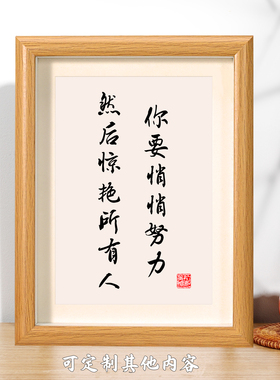 你要悄悄努力
然后惊艳所有人
可定制其他内容